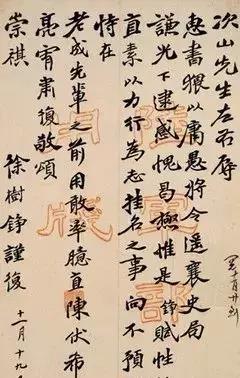 次山先生左右辱
惠書猥以庸愚將令遙襄史局
謙光下逮感愧曷極惟是錚賦性
直素以力行為志挂名之事向不預
恃在
老成先輩之前用敢率臆直陳伏希
亮宥肅復敬頌
崇祺
徐樹錚謹復
十一月十九